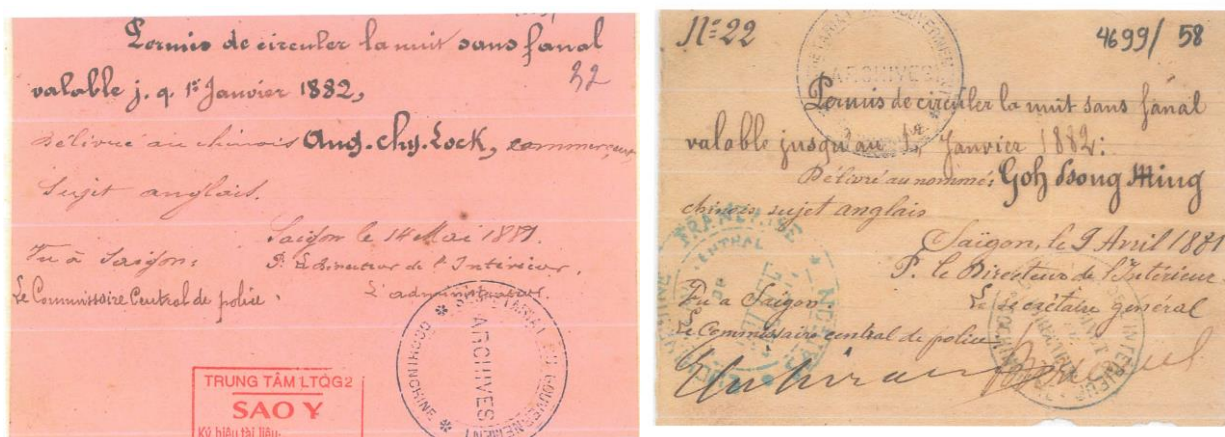 Permis de circuler la nuit sans fanal
22
valable j. q. 1er Janvier 1882,
Délivré au chinois Ang. Chy. Lock, commerçant
Sujet anglais.
Saigon le 14 Mai 1881.
Vu à Saigon: P. Le Directeur de l'Intérieur,
Le Commissaire Central de police. L'administrateur.
TRUNG TÂM LTQG2
SAO Y
Ký hiệu tài liệu:
ARCHIVES
COCHINCHINE
N° 22 4699/ 58
ARCHIVES
Permis de circuler la nuit sans fanal
valable jusqu'au 1er Janvier 1882:
Délivré au nommé: Goh Soong Ming
chinois sujet anglais
Saïgon, le 9 Avril 1881
P. le Directeur de l'Intérieur
Vu a Saigon Le Secrétaire général
Le Commissaire central de police
FRANÇAISE
CENTRAL